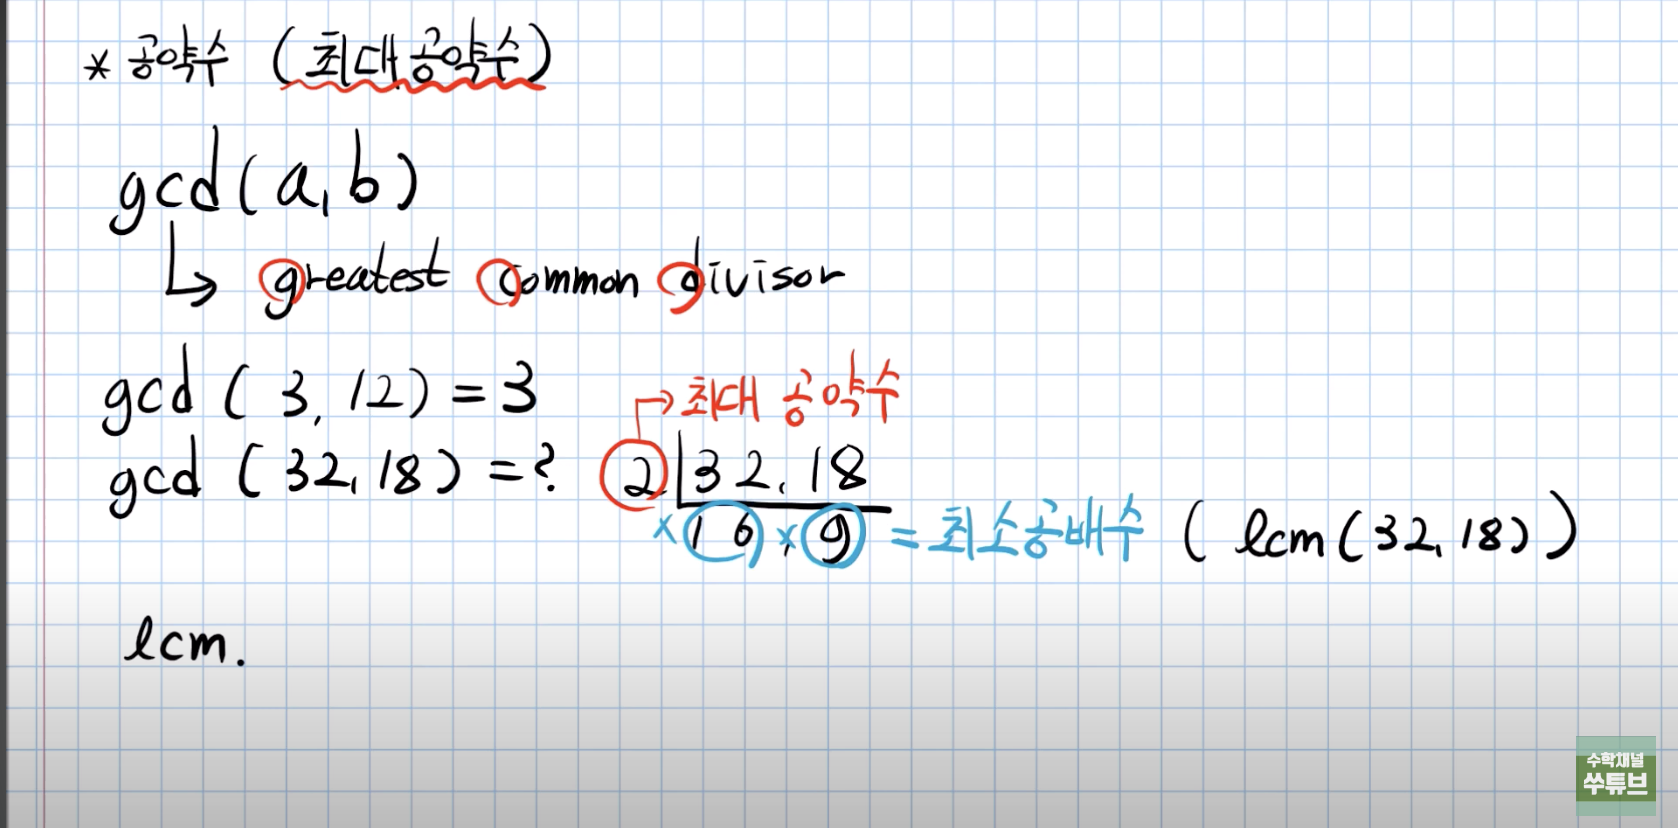 * 공약수 (최대공약수)
gcd(a,b)
↳ greatest common divisor
gcd ( 3, 12) = 3
→ 최대 공약수
gcd ( 32, 18 ) = ? 2 | 32, 18
× 16 × , 9 = 최소공배수 ( lcm ( 32, 18 ) )
lcm.
수학채널
쑤튜브